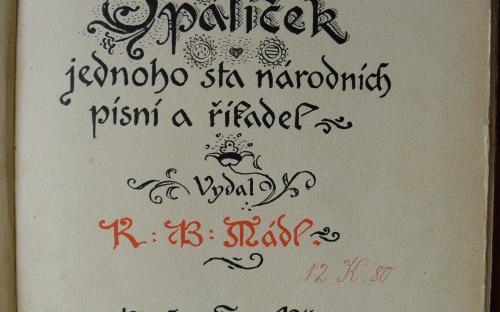 Špalíček
jednoho sta národních
písní a říkadel
Vydal
K: B: Mádl.
12 K. 80